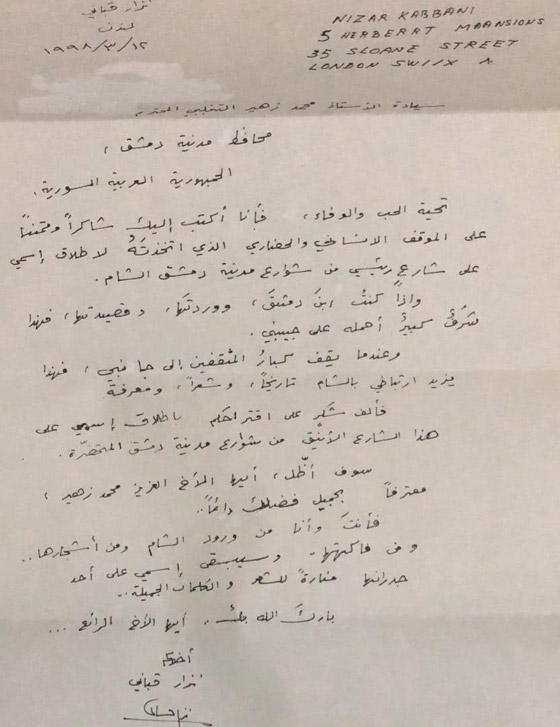 نزار قباني
لندن
١٩٩٨/٣/١٢
NIZAR KABBANI
5 HERBERRT MAANSIONS
35 SLOANE STREET
LONDON SW1XX
سيادة الأستاذ محمد زهير التغلبي المحترم
محافظ مدينة دمشق ،
الجمهورية العربية السورية .
تحية الحب والوفاء ، فأنا أكتب إليك شاكراً وممتناً
على الموقف الانساني والحضاري الذي اتخذتَهُ لاطلاق إسمي
على شارع رئيسي من شوارع مدينة دمشق الشام .
واذا كنتُ ابنَ دمشقَ ، ووردتَها ، وقصيدتها ، فهذا
شرفٌ كبيرٌ أحمله على جبيني .
وعندما يقف كبارُ المثقفين إلى جانبي ، فهذا
يزيد ارتباطي بالشام تاريخاً ، وشعراً ، ومعرفة
فألف شكر على اقتراحكم باطلاق إسمي على
هذا الشارع الأنيق من شوارع مدينة دمشق المتحضّرة .
سوف أظّل ، أيها الأخ العزيز محمد زهير ،
معترفاً بجميل فضلك دائماً ..
فأنتَ وأنا من ورود الشام ومن أشجارها ..
ومن فاكهتها .. وسيبقى إسمي على أحد
جدرانها منارةً للشعر والكلمات الجميلة ..
باركَ الله بك .. أيها الأخ الرائع ...
أخوكم
نزار قباني